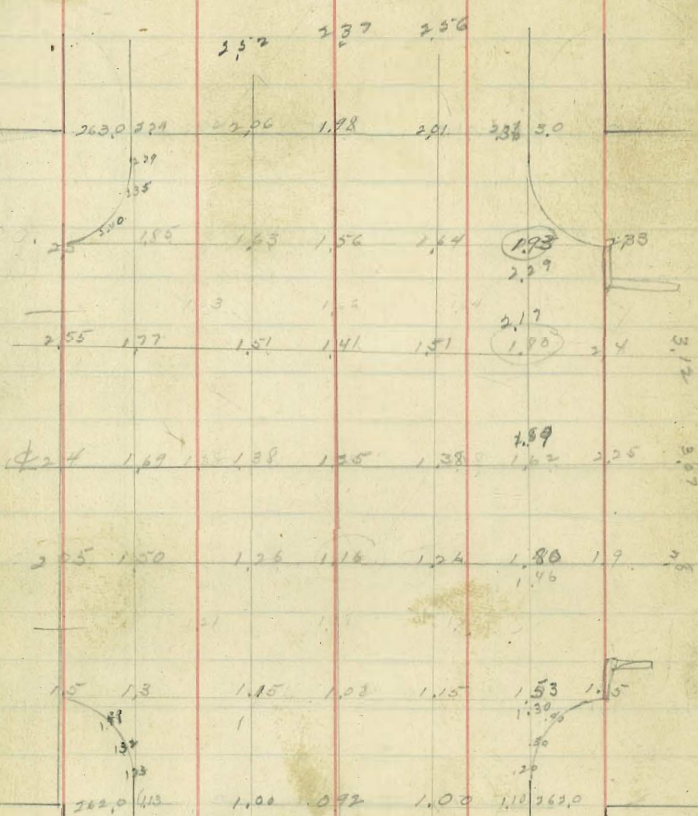 2.52 2.37 2.56
263.0 2.29 2.06 1.98 2.01 3.0
2.29
2.35
2.5 1.85 1.63 1.56 1.64 1.93 2.33
2.29
2.17
2.55 1.77 1.51 1.41 1.51 1.80 2.4
3.12
1.89
℄ 2.4 1.69 1.38 1.25 1.38 1.62 2.25
3.07
1.50 1.26 1.16 1.24 1.80 1.9
1.46
1.5 1.3 1.15 1.03 1.15 1.53
1.30
1.32
1.23
.20
262.0 1.13 1.00 0.92 1.00 1.10 262.0